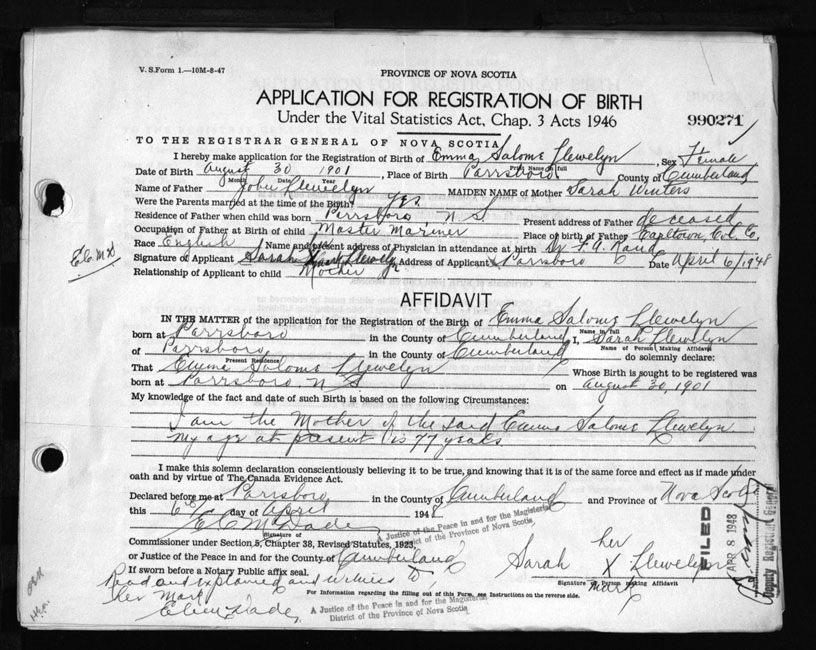 V. S. Form 1.—10M-8-47
PROVINCE OF NOVA SCOTIA
APPLICATION FOR REGISTRATION OF BIRTH
Under the Vital Statistics Act, Chap. 3 Acts 1946
990271
TO THE REGISTRAR GENERAL OF NOVA SCOTIA
I hereby make application for the Registration of Birth of Emma Salome Llewelyn, Sex Female
Print Name in full
Date of Birth August 30 1901, Place of Birth Parrsboro County of Cumberland
Month Date Year
Name of Father John Llewelyn MAIDEN NAME of Mother Sarah Winters
Were the Parents married at the time of the Birth? Yes
Residence of Father when child was born Parrsboro N. S. Present address of Father deceased
Occupation of Father at Birth of child Master Mariner Place of birth of Father Earltown, Col. Co.
Race English Name and present address of Physician in attendance at birth Dr. F. A. Rand
Signature of Applicant Sarah Llewelyn Address of Applicant Parrsboro Date April 6/1948
Relationship of Applicant to child Mother
E.C. McD
AFFIDAVIT
IN THE MATTER of the application for the Registration of the Birth of Emma Salome Llewelyn
Name in full
born at Parrsboro in the County of Cumberland I, Sarah Llewelyn
Name of Person Making Affidavit
of Parrsboro in the County of Cumberland do solemnly declare:
Present Residence
That Emma Salome Llewelyn Whose Birth is sought to be registered was
born at Parrsboro N S. on August 30, 1901
My knowledge of the fact and date of such Birth is based on the following Circumstances:
I am the Mother of the said Emma Salome Llewelyn
My age at present is 77 years
I make this solemn declaration conscientiously believing it to be true, and knowing that it is of the same force and effect as if made under
oath and by virtue of The Canada Evidence Act.
Declared before me at Parrsboro in the County of Cumberland and Province of Nova Scotia
this 6th day of April 1948
E C McDade
Signature of
A Justice of the Peace in and for the Magisterial
District of the Province of Nova Scotia,
Commissioner under Section 5, Chapter 38, Revised Statutes, 1923,
or Justice of the Peace in and for the County of Cumberland
If sworn before a Notary Public affix seal.
Sarah her X mark Llewelyn
Signature of Person making Affidavit
Read and explained and witness to
her Mark
For Information regarding the filling out of this Form, see Instructions on the reverse side.
A Justice of the Peace in and for the Magisterial
District of the Province of Nova Scotia
FILED
APR 8 1948
Deputy Registrar General